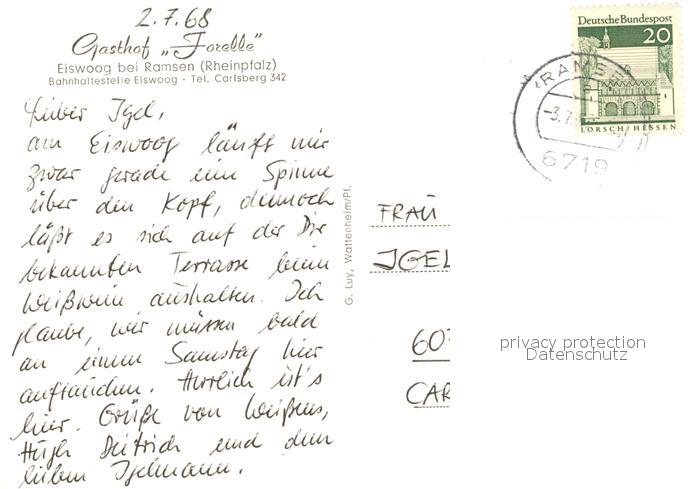 2.7.68
Gasthof „Forelle"
Eiswoog bei Ramsen (Rheinpfalz)
Bahnhaltestelle Eiswoog · Tel. Carlsberg 342
Lieber Igel,
am Eiswoog läuft mir
zwar gerade eine Spinne
über den Kopf, dennoch
läßt es sich auf der Dir
bekannten Terrasse beim
Weißwein aushalten. Ich
glaube, wir müssen bald
an einem Samstag hier
auftauchen. Herrlich ist's
hier. Grüße von
Hugh Dietrich und dem
lieben Igelmann.
G. Luy, Wattenheim/Pf.
Deutsche Bundespost
20
LORSCH/HESSEN
RAMSE
-3.7.
6719
FRAU
IGEL
60
CAR
privacy protection
Datenschutz